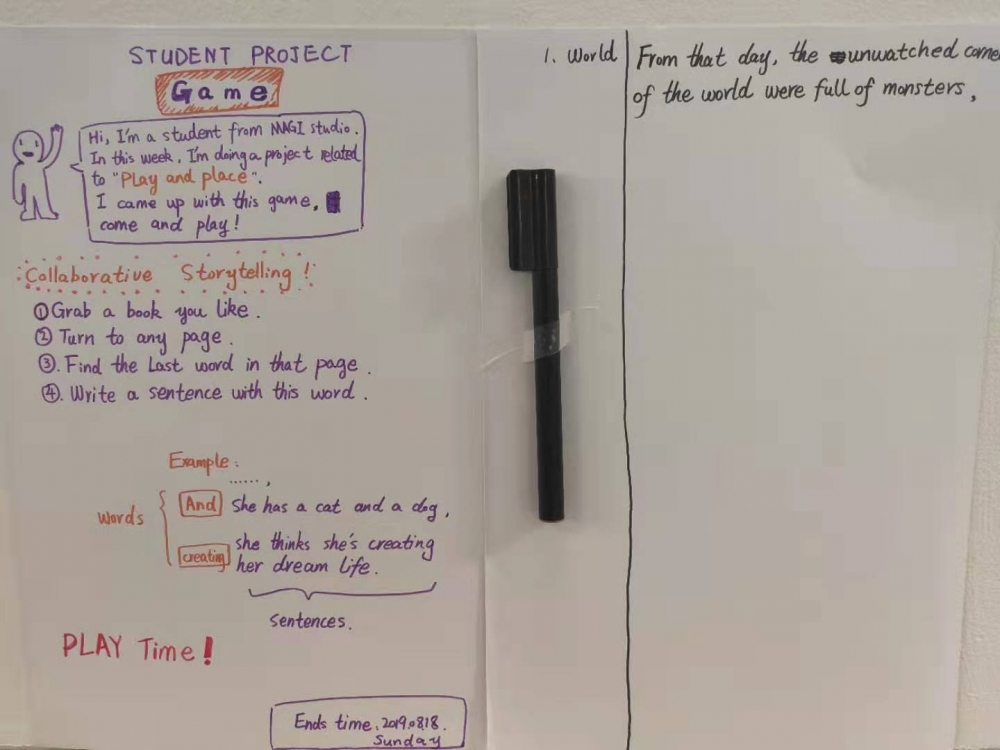 STUDENT PROJECT
Game
Hi, I'm a student from MAGI studio.
In this week, I'm doing a project related
to "Play and place".
I came up with this game,
come and play!
Collaborative Storytelling!
① Grab a book you like.
② Turn to any page.
③. Find the Last word in that page.
④. Write a sentence with this word.
Example:
......,
Words
And She has a cat and a dog,
creating she thinks she's creating
her dream life.
sentences.
PLAY Time!
Ends time, 2019.08.18.
Sunday
1. World
From that day, the unwatched corne
of the world were full of monsters,